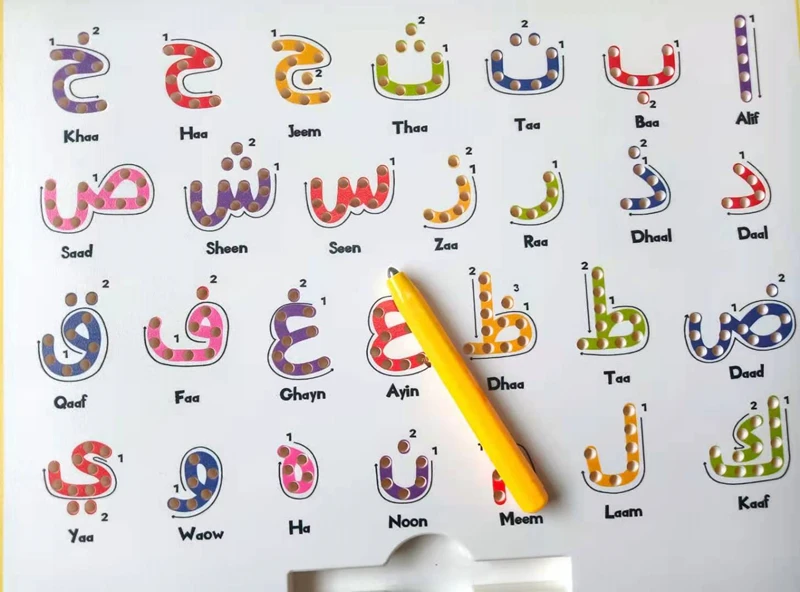 ا ب ت ث ج ح خ
Alif Baa Taa Thaa Jeem Haa Khaa
د ذ ر ز س ش ص
Daal Dhaal Raa Zaa Seen Sheen Saad
ض ط ظ ع غ ف ق
Daad Taa Dhaa Ayin Ghayn Faa Qaaf
ك ل ن ه و ي
Kaaf Laam Meem Noon Ha Waow Yaa